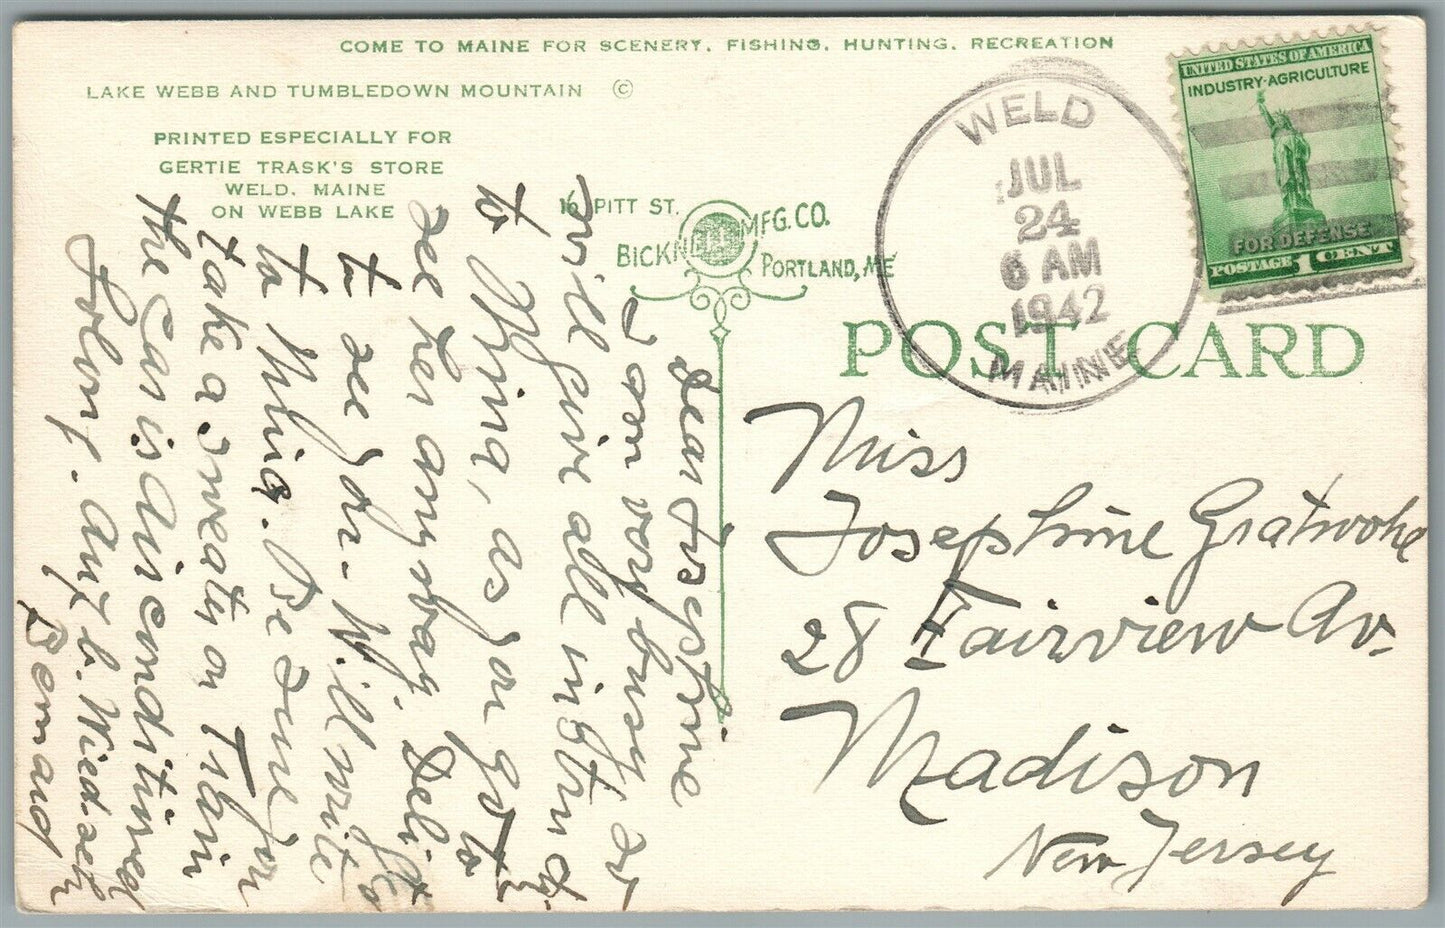 COME TO MAINE FOR SCENERY, FISHING, HUNTING, RECREATION
LAKE WEBB AND TUMBLEDOWN MOUNTAIN ©
PRINTED ESPECIALLY FOR
GERTIE TRASK'S STORE
WELD, MAINE
ON WEBB LAKE
16 PITT ST.
BICKNELL MFG. CO.
PORTLAND, ME
WELD
JUL
24
6 AM
1942
MAINE
UNITED STATES OF AMERICA
INDUSTRY·AGRICULTURE
FOR DEFENSE
POSTAGE 1 CENT
POST CARD
Dear Josephine
I am very busy so
will give all
to Mina, as you go to
see her anyway. Delight
to see you - Will write to
to Mina. Be sure you
take a on Train
the Car is Airconditined
Lolong. Aug 6. Wiedsehn
Bernard
Miss
Josephine Gratwohl
28 Fairview Av.
Madison
New Jersey